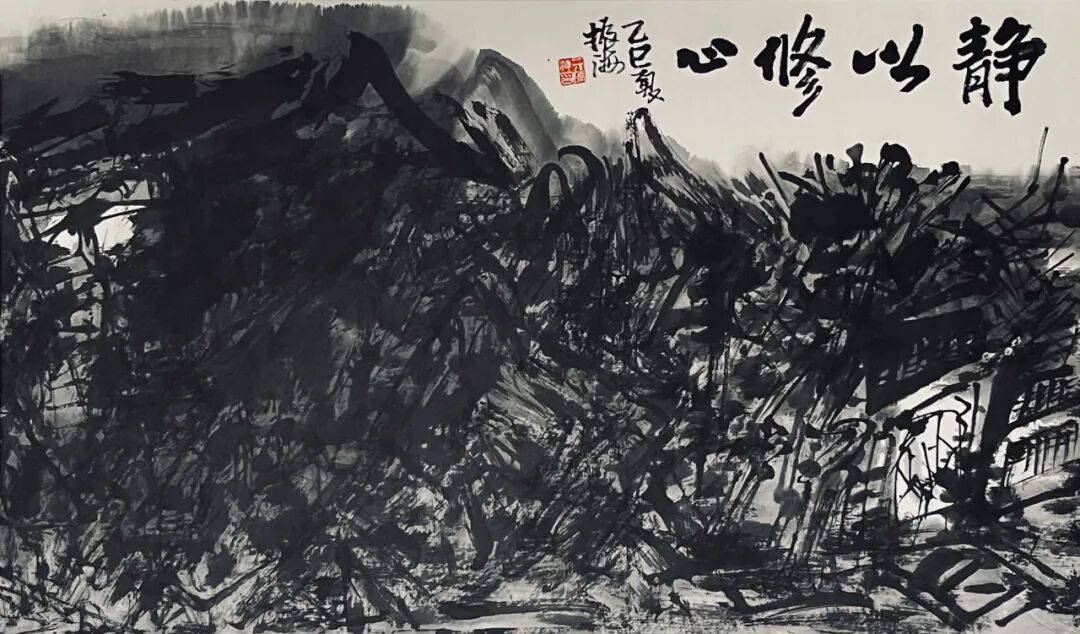 静以修心
乙巳夏
海